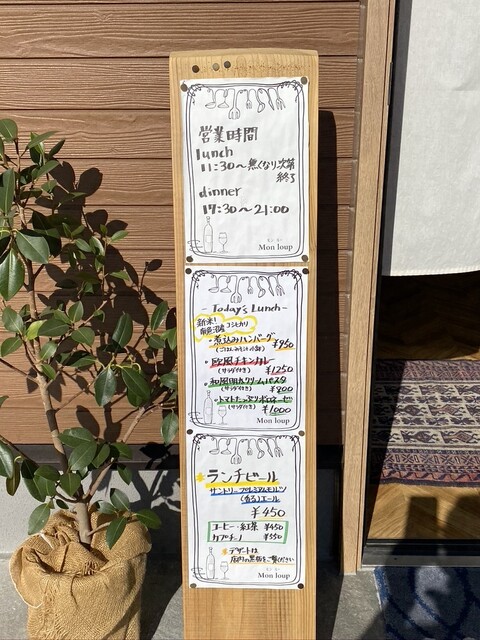 営業時間
lunch
11:30〜無くなり次第
終了
dinner
17:30〜21:00
Mon loup
- Today's Lunch -
新米!
南魚沼産コシヒカリ
・煮込みハンバーグ ¥950
・欧風チキンカレー
(サラダ付き) ¥1250
・和風明太クリームパスタ
(サラダ付き) ¥800
・トマトたっぷりボロネーゼ
(サラダ付き) ¥1000
Mon loup
ランチビール
サントリー プレミアムモルツ
〈香る〉エール
¥450
コーヒー・紅茶 ¥450
カプチーノ ¥550
デザートは
店内の黒板をご覧ください
Mon loup